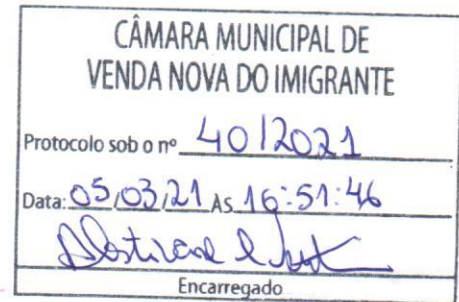 CÂMARA MUNICIPAL DE
VENDA NOVA DO IMIGRANTE
Protocolo sob o nº 40/2021
Data: 05/03/21 ÀS 16:51:46
Encarregado